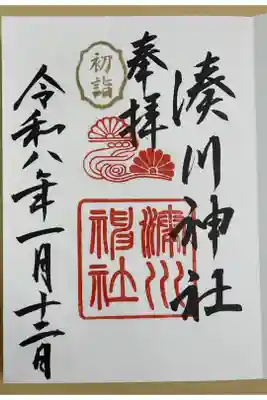 湊川神社
奉拝
初詣
湊川神社
令和八年一月十二日